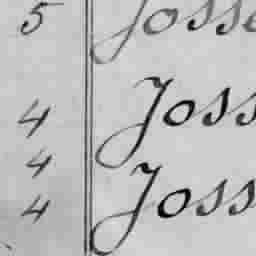 5 Josse
4 Joss
4
4 Joss